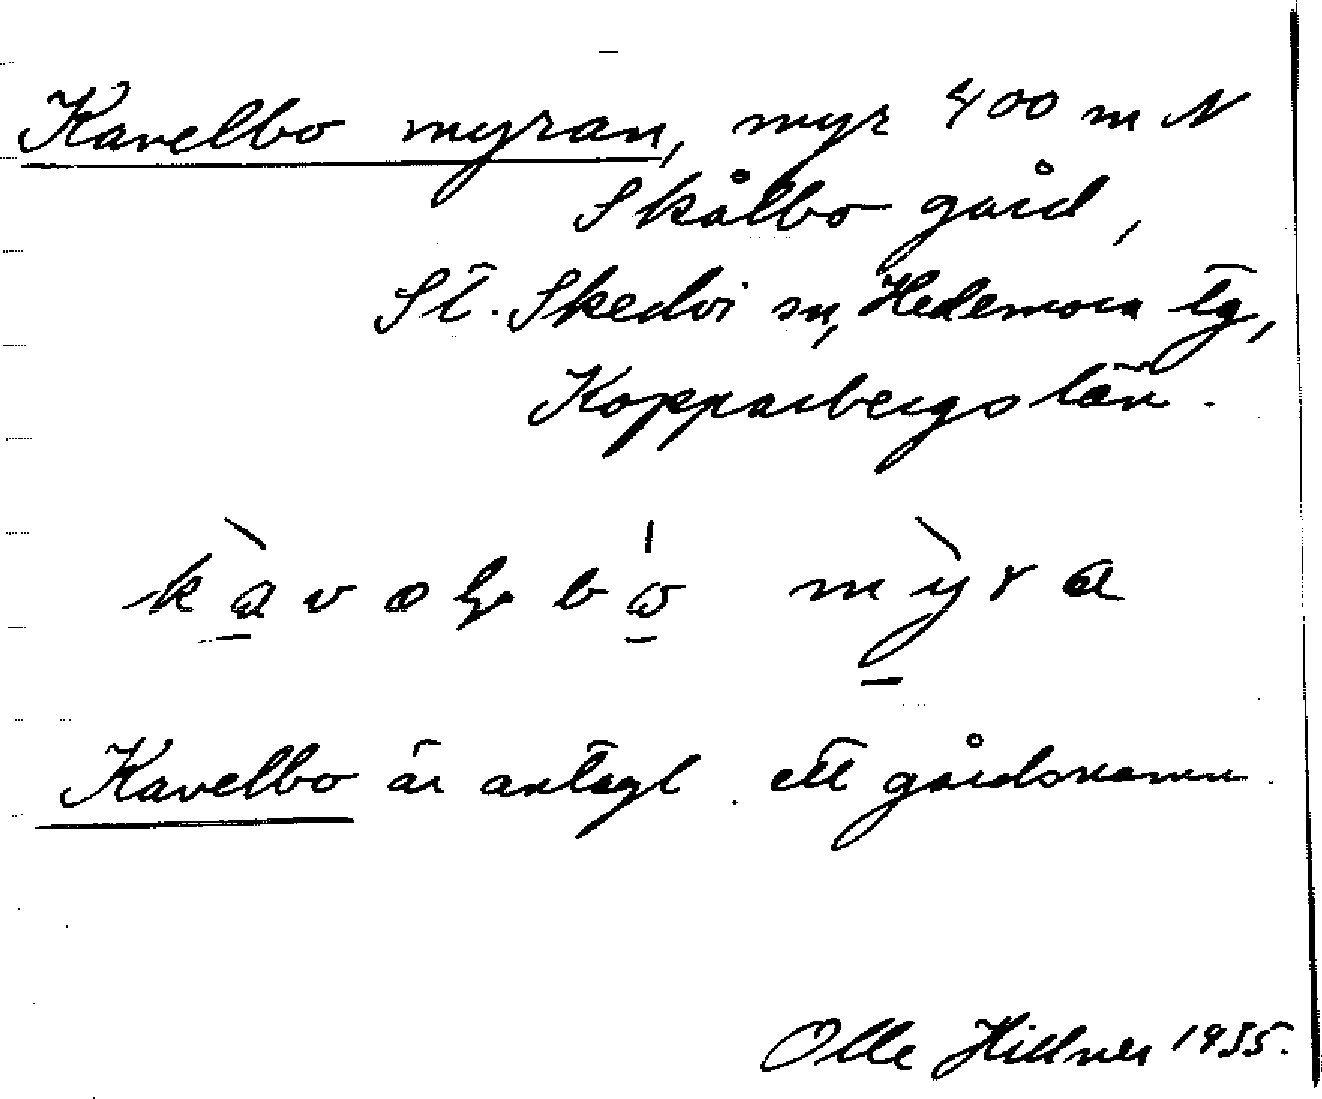 Kavelbo myran, myr 400 m N
Skålbo gård,
St. Skedvi sn, Hedemora tg,
Kopparbergs län.
kàvəlbó mỳra
Kavelbo är antagl. ett gårdsnamn.
Olle Hillner 1935.